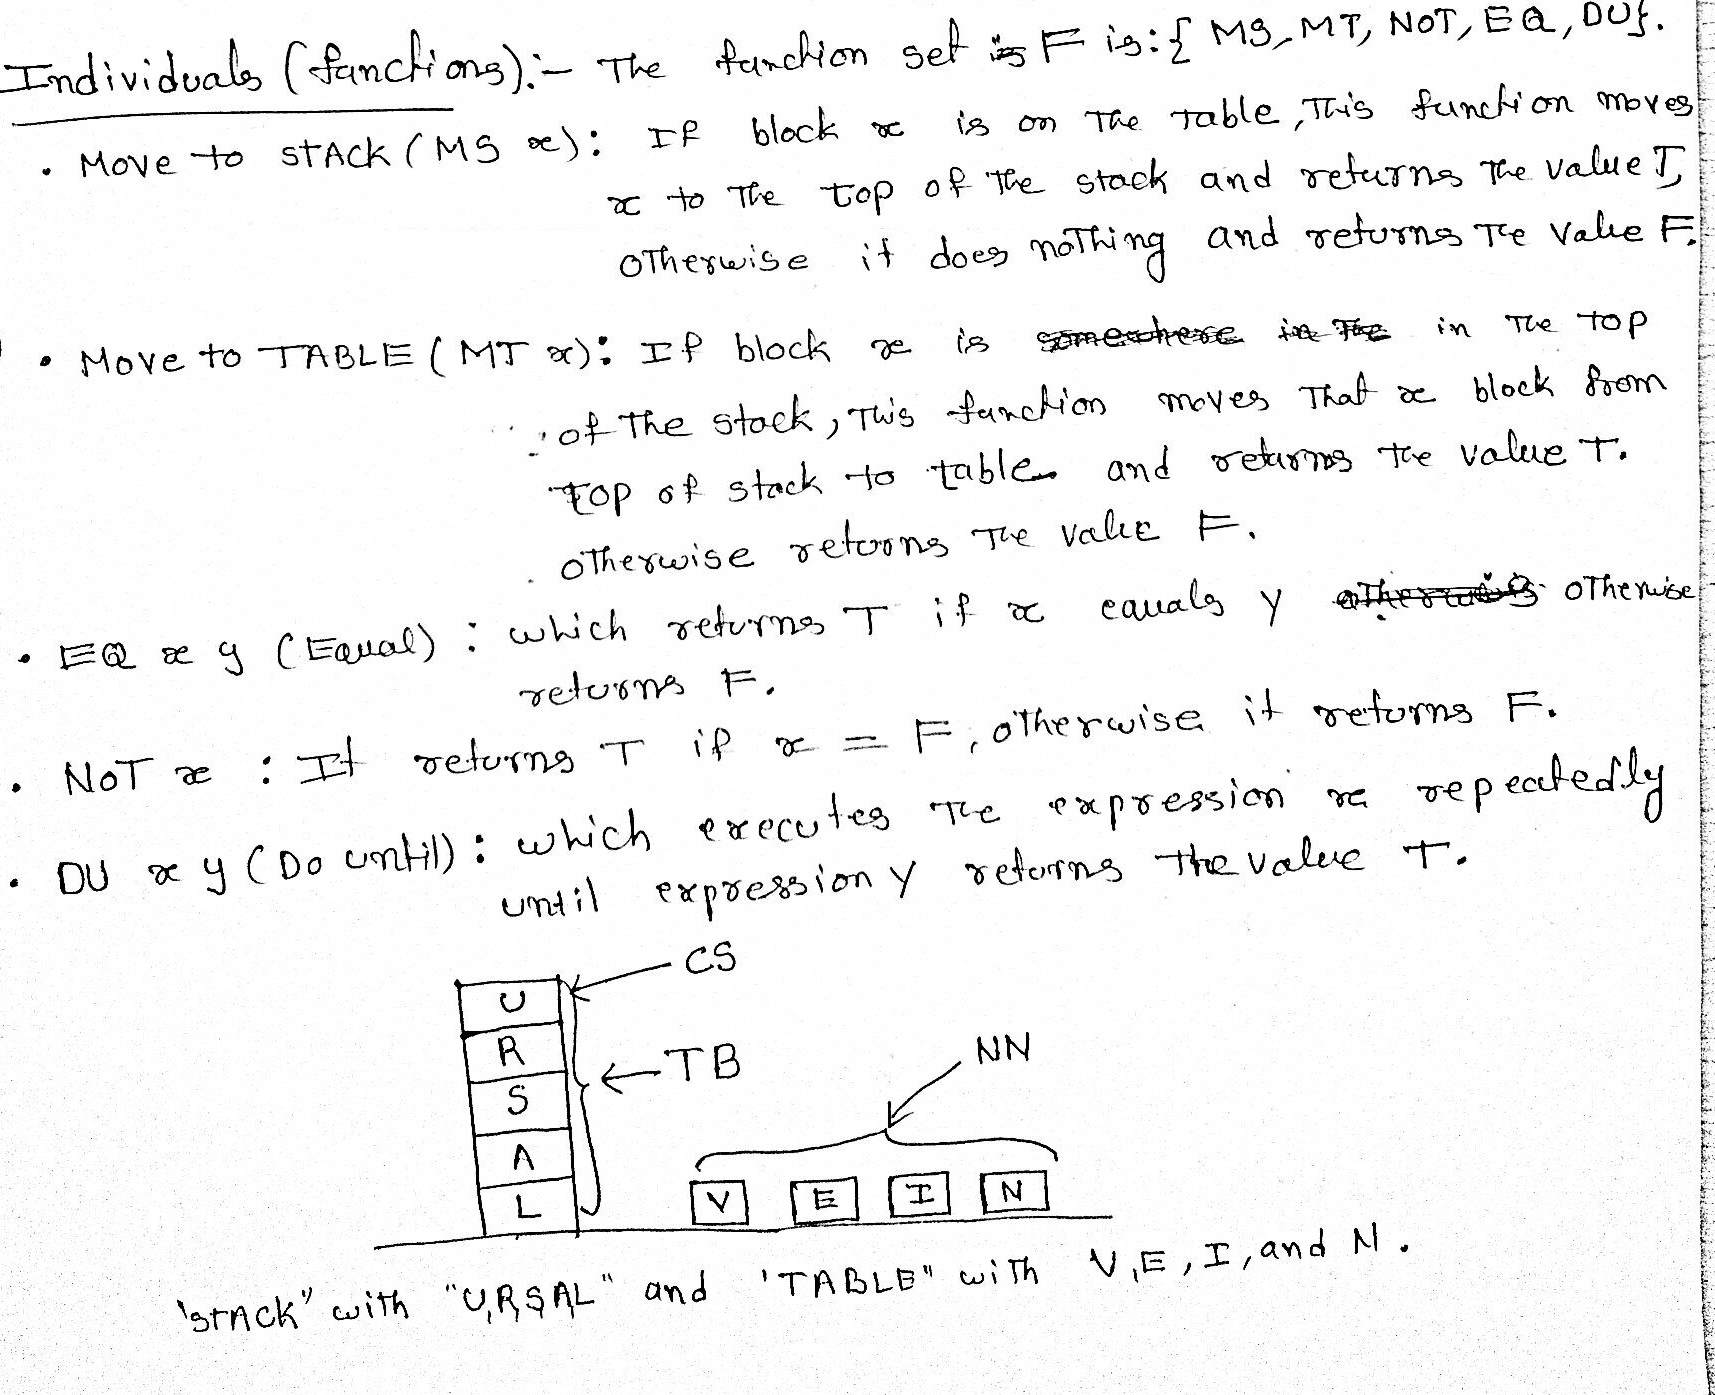 Individuals (functions):- The function set is F is:{ MS, MT, NOT, EQ, DU}.
• Move to STACK (MS x): If block x is on the table, This function moves
x to the top of the stack and returns the value T,
otherwise it does nothing and returns the value F.
• Move to TABLE (MT x): If block x is somewhere in the in the top
of the stock, This function moves that x block from
top of stack to table and returns the value T.
otherwise returns the value F.
• EQ x y (Equal) : which returns T if x equals y otherwise
returns F.
• NOT x : It returns T if x = F, otherwise it returns F.
• DU x y (Do until) : which executes the expression x repeatedly
until expression y returns the value T.
CS
U
R
TB
NN
S
A
L
V E I N
'STACK" with "U,R,S,A,L" and 'TABLE" with V,E,I, and N.